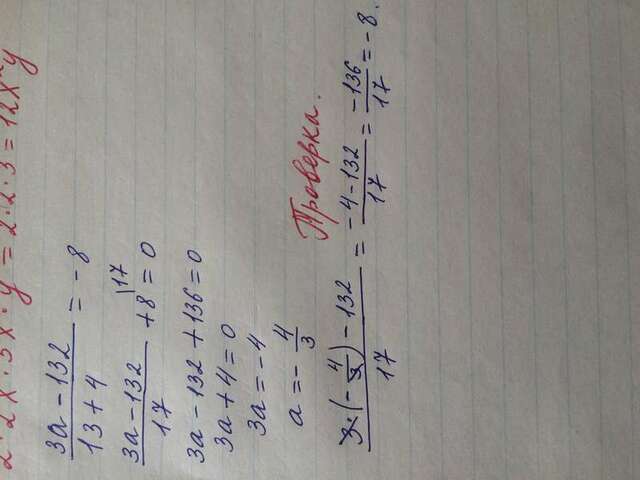 2·2x·3x·y = 2·2·3 = 12x²y
3a – 132 / 13 + 4 = – 8
3a – 132 / 17 + 8 |17 = 0
3a – 132 + 136 = 0
3a + 4 = 0
3a = – 4
a = – 4/3
Проверка.
3·(– 4/3) – 132 / 17 = – 4 – 132 / 17 = – 136 / 17 = – 8.